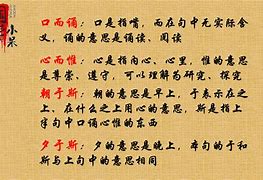 小呆
口而诵：口是指嘴，而在句中无实际含
义，诵的意思是诵读、阅读
心而惟：心是指内心、心里，惟的意思
是尊崇、遵守，可以理解为研究、探究
朝于斯：朝的意思是早上，于表示在之
上、在什么之上用心的意思，斯是指上
半句中口诵心惟的东西
夕于斯：夕的意思是晚上，本句的于和
斯与上句中的意思相同